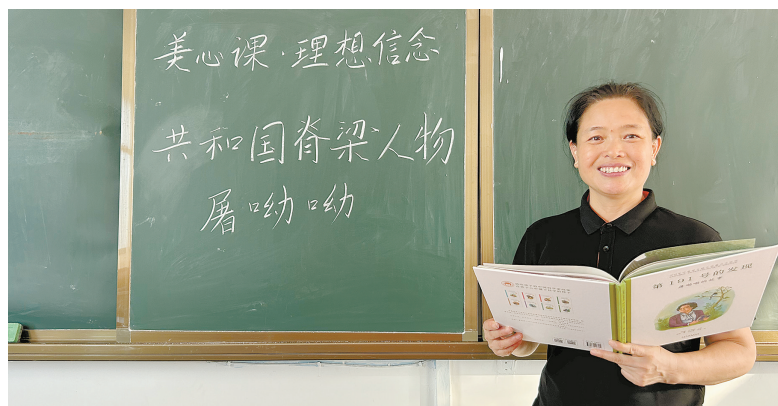 美心课·理想信念
共和国脊梁人物
屠呦呦
第191号的发现